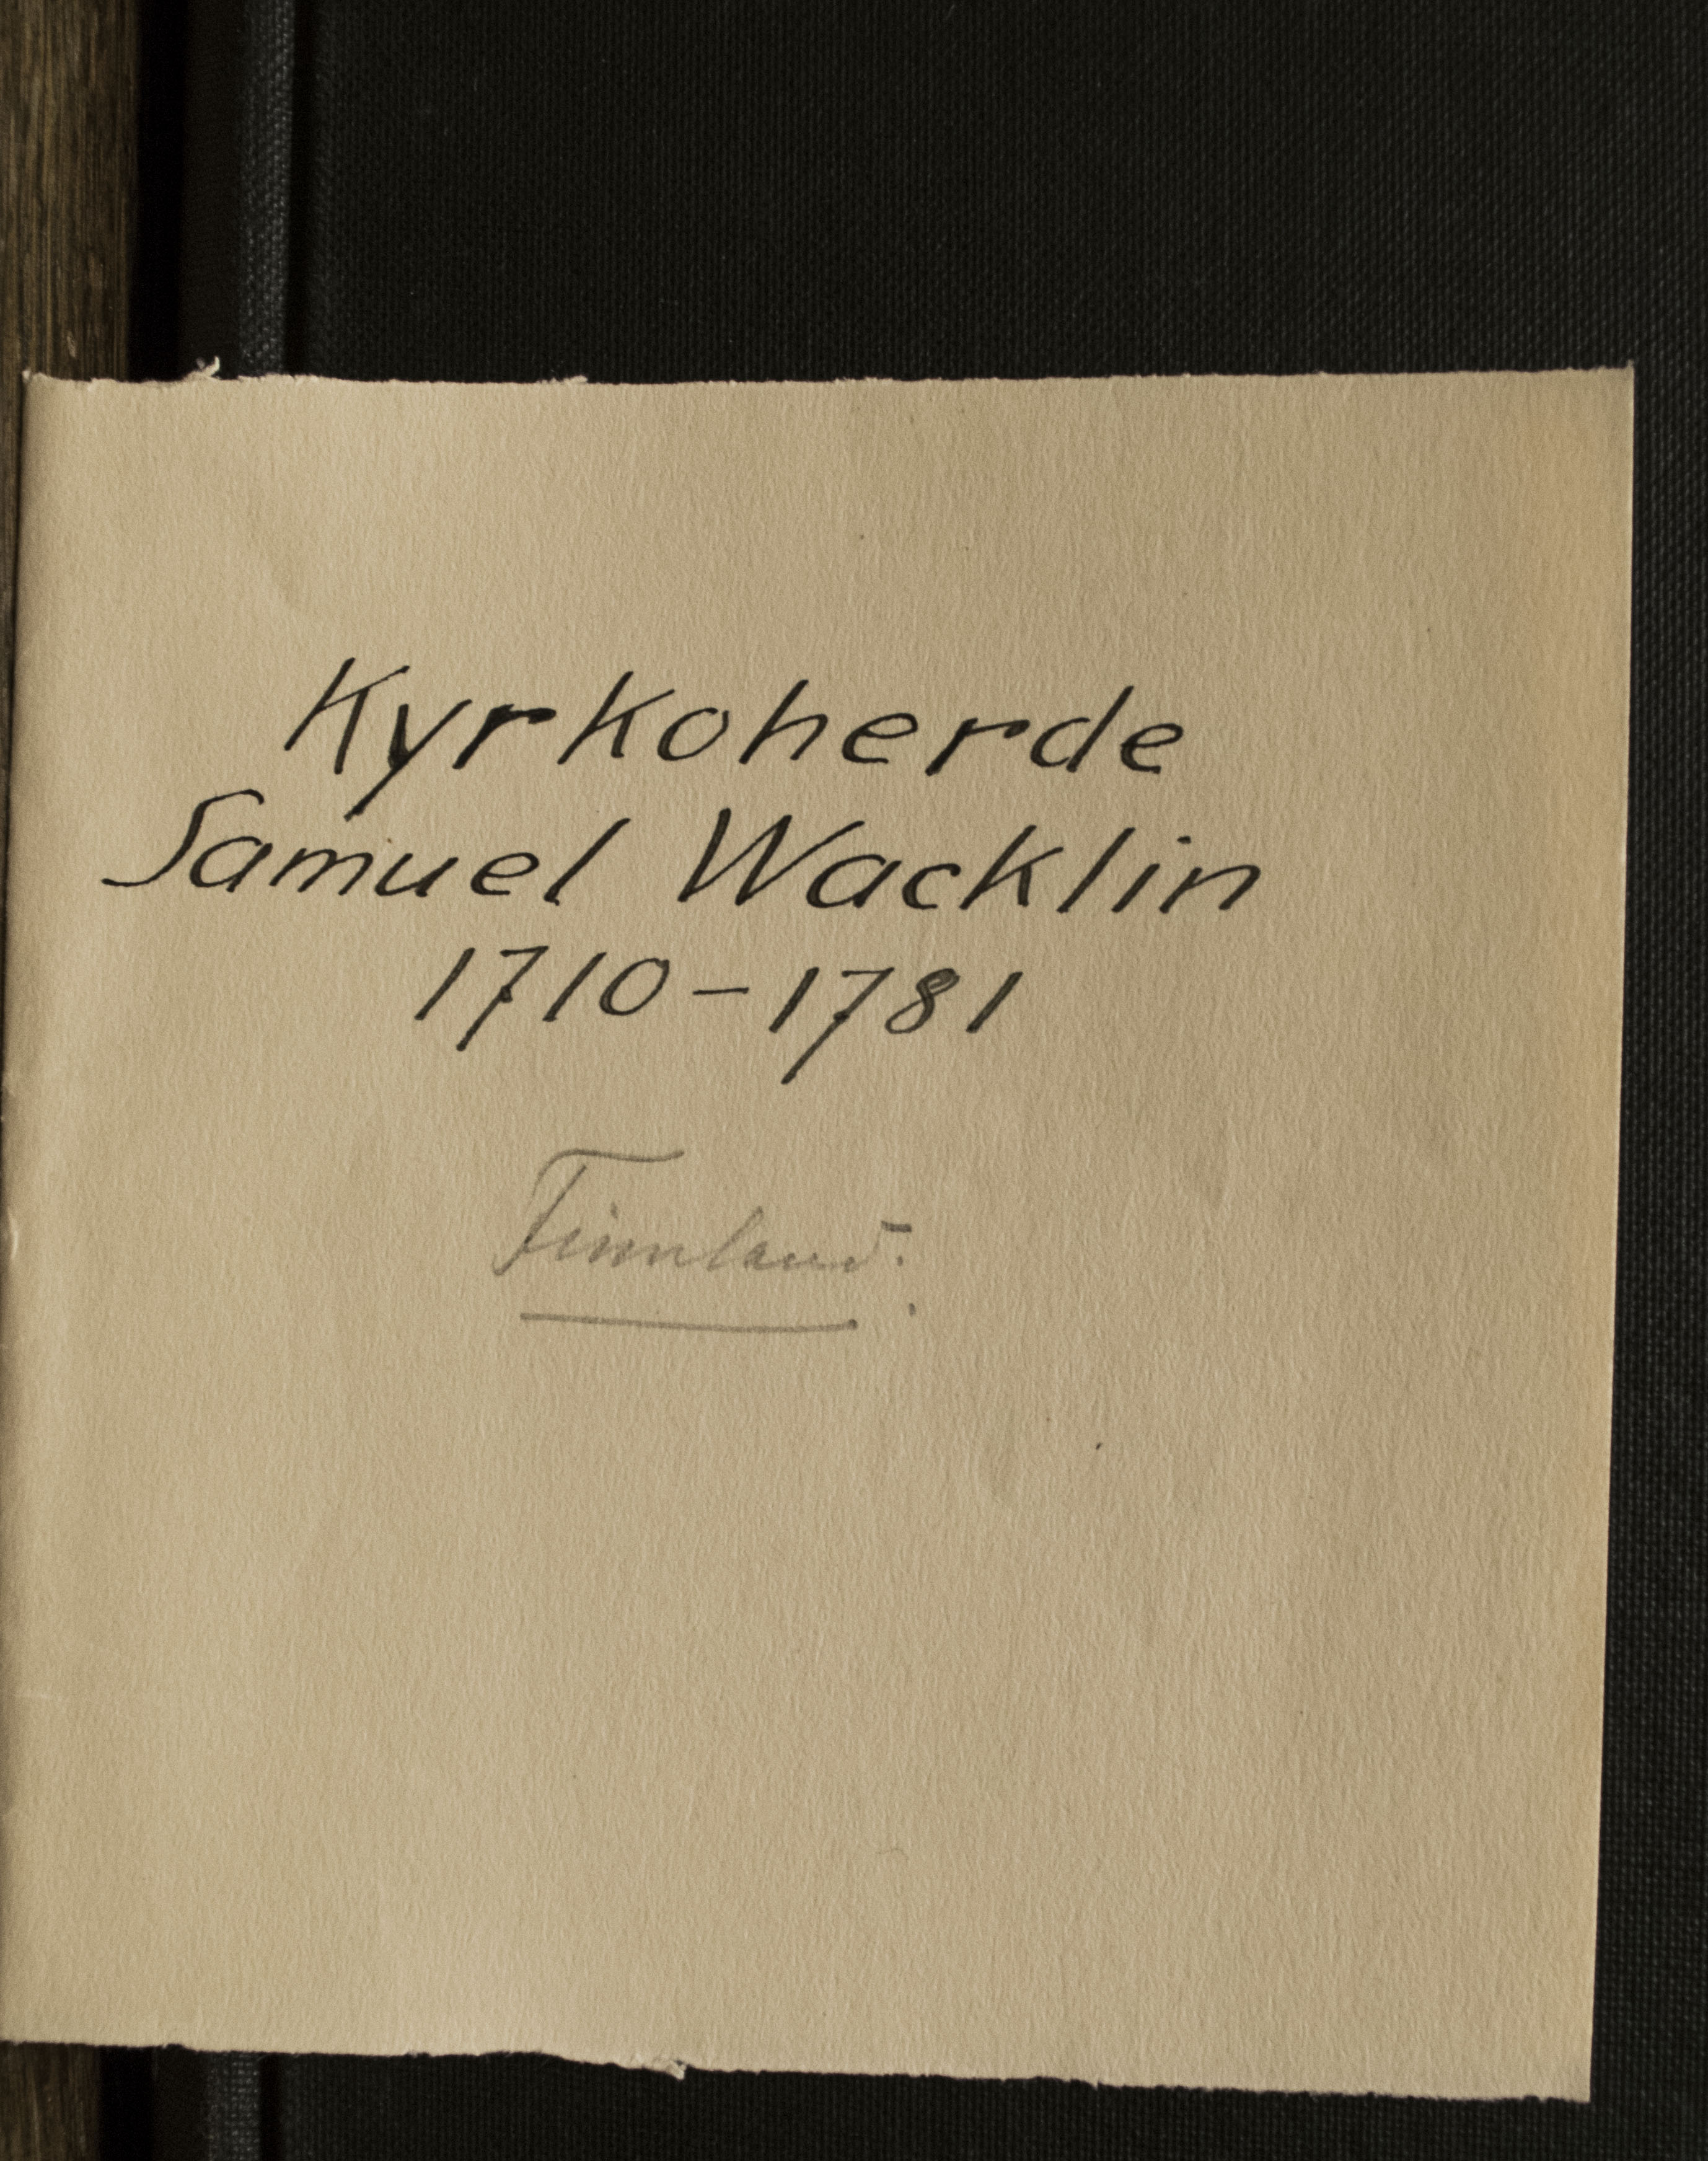 Kyrkoherde
Samuel Wacklin
1710-1781
Finnland.